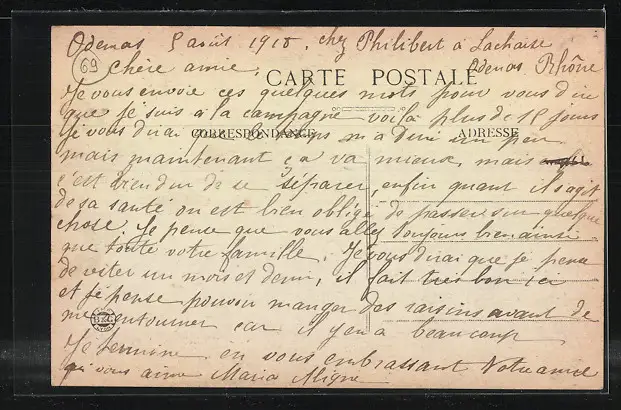 Odenas 5 août 1918. chez Philibert à Lachaise
69
Odenas Rhône
Chère amie,
CARTE POSTALE
Je vous envoie ces quelques mots pour vous dire
que je suis à la campagne voilà plus de 15 jours
je vous dirai que le temps m'a duré un peu
CORRESPONDANCE
ADRESSE
mais maintenant ça va mieux, mais
c'est bien dur de se séparer, enfin quant il s'agit
de sa santé on est bien obligé de passer sur quelque
chose. Je pense que vous allez toujours bien ainsi
que toute votre famille. Je vous dirai que je pense
de rester un mois et demi, il fait très bon ici
et je pense pouvoir manger des raisins avant de
m'en tourner car il y en a beaucoup
B&G
Je termine en vous embrassant Votre amie
qui vous aime Maria Aligne